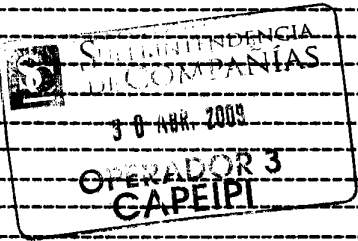 SUPERINTENDENCIA
DE COMPAÑÍAS
30 ABR. 2009
OPERADOR 3
CAPEIPI